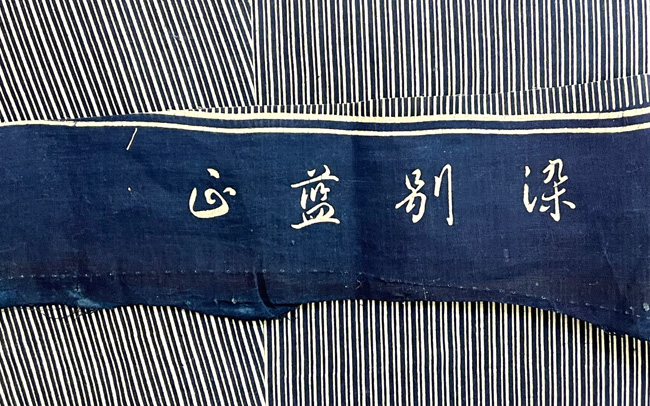 正藍別染